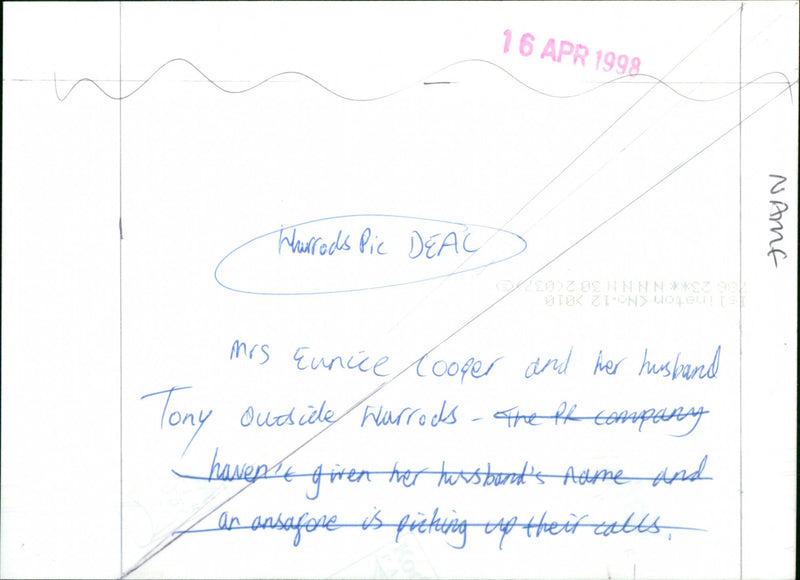 16 APR 1998
NAME
Harrods Pic DEAL
Islington <No-12 >010
706 23** N N N N H 30 2(037)
Mrs Eunice Cooper and her husband
Tony outside Harrods - The PR company
haven't given her husband's name and
an ansafone is picking up their calls.